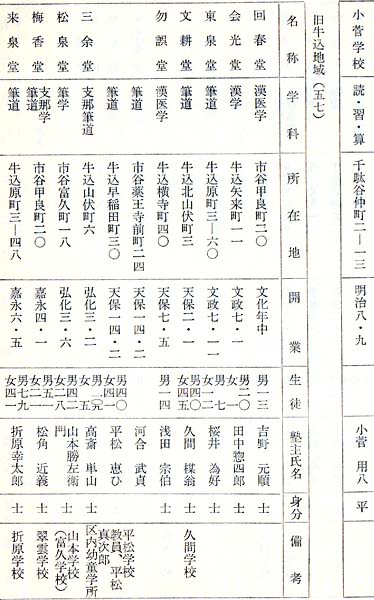 小菅学校 読・習・算 千駄谷仲町二—一三 明治八・九 小菅 用八 平
旧牛込地域(五七)
名称 学科 所在地 開業 生徒 塾主氏名 身分 備考
回春堂 漢医学 市谷甲良町二〇 文化年中 男一三 吉野 元順 士
会光堂 漢学 牛込矢来町一一 文政七・一 男二〇 田中惣四郎 士
東泉堂 筆道 牛込原町三—六〇 文政七・一一 男七 女一二 桜井 為好 士
文耕堂 筆道 牛込北山伏町三 天保二・一 男四〇 女四五 久間 楳翁 士 久間学校
勿誤堂 漢医学 牛込横寺町四〇 天保七・五 男一四 浅田 宗伯 士
筆道 市谷薬王寺前町二四 天保一四・一 河合 武貞
筆道 牛込早稲田町三〇 天保一四・二 男四〇 平松 恵ひ 士 平松学校 教員、平松真次郎
三余堂 支那筆道 牛込山伏町六 弘化三・二 女五 高斎 単山 士 区内幼童学所
松泉堂 筆学 市谷富久町一八 弘化三・六 男四二 女二八 山本勝左衛門 士 山本学校(富久学校)
梅香堂 支那学 筆道 市谷甲良町二〇 嘉永四・一 男五一 女二一 松角 近義 士 翠雲学校
来泉堂 筆道 牛込原町三—四八 嘉永六・五 男七九 女四一 折原幸太郎 士 折原学校